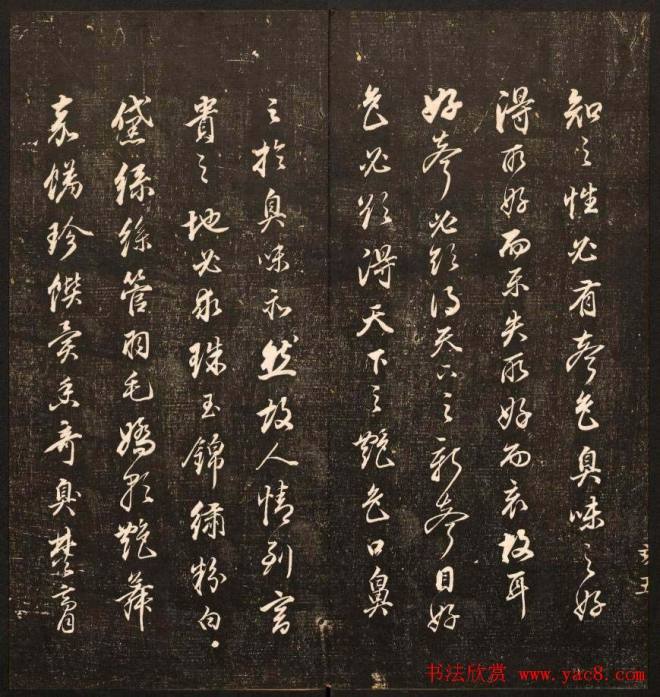 知之性必有聲色臭味之好
得所好而樂失所好而哀故耳
好聲必欲得天下之新聲目好
色必欲得天下之艷色口鼻
之於臭味亦然故人情到富
貴之地必求珠玉錦繡粉白
黛綠絲管羽毛嬌歌艷舞
珍饌異香奇臭焚膏
书法欣赏 www.yac8.com